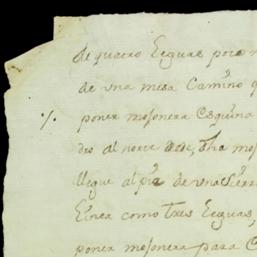 de quatro Leguas poco m
de una mesa Camino q
poner mojonera Esquina
dro al norte desde, dha mo
llegue al pie de una Sierr
Linea como tres Leguas,
poner mojonera para C